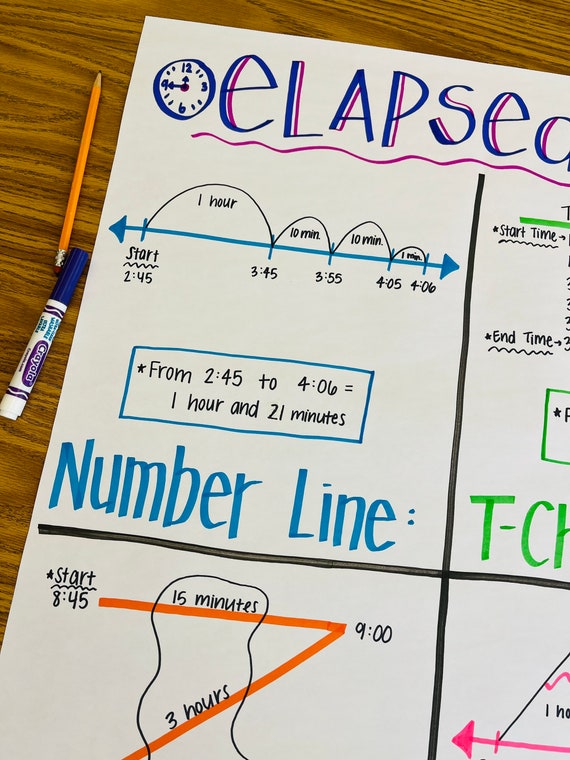 12
9 3
6
ELAPSED
1 hour
10 min.
10 min.
1 min.
Start
2:45
3:45
3:55
4:05
4:06
*From 2:45 to 4:06 =
1 hour and 21 minutes
Number Line:
*Start Time→
*End Time→3
T-Ch
*Start
8:45
15 minutes
9:00
3 hours
1 ho
Crayola